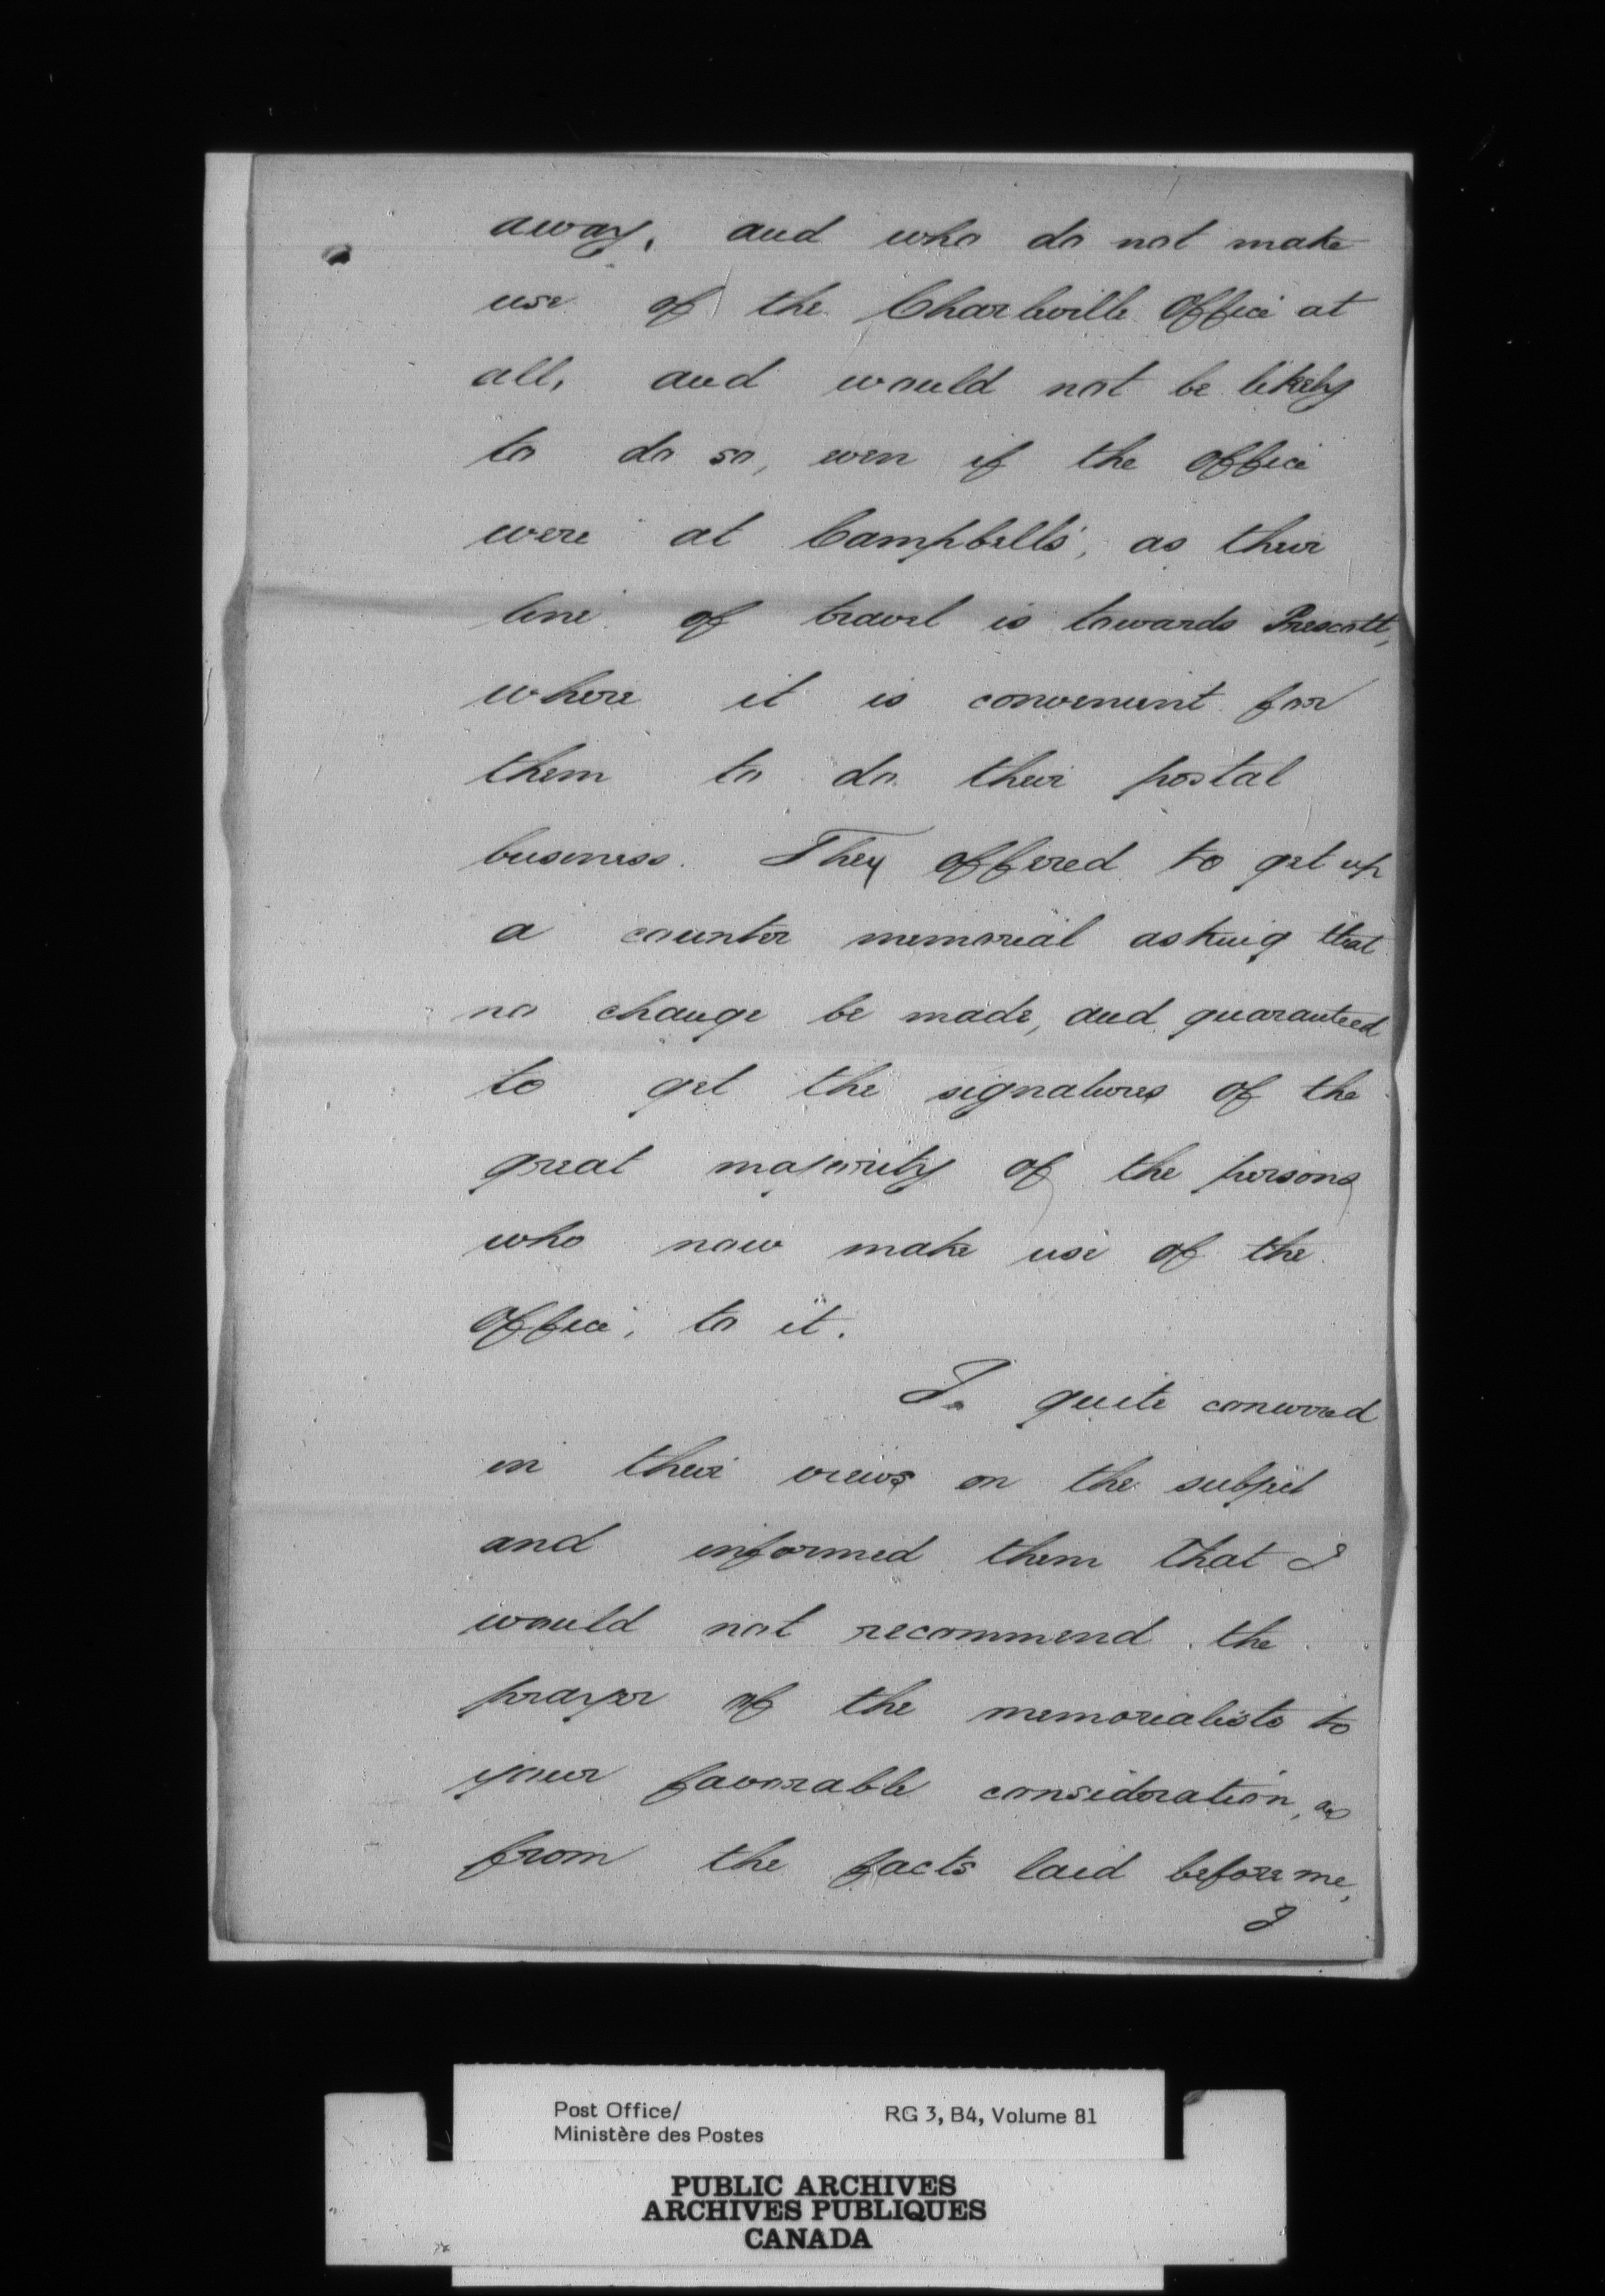 away, and who do not make
use of the Charleville Office at
all, and would not be likely
to do so, even if the office
were at Campbells', as their
line of travel is towards Prescott,
where it is convenient for
them to do their postal
business. They offered to get up
a counter memorial asking that
no change be made, and guaranteed
to get the signatures of the
great majority of the persons
who now make use of the
office, to it.
I quite concurred
in their views on the subject
and informed them that I
would not recommend the
prayer of the memorialists to
your favorable consideration, as
from the facts laid before me,
I
Post Office/ RG 3, B4, Volume 81
Ministère des Postes
PUBLIC ARCHIVES
ARCHIVES PUBLIQUES
CANADA